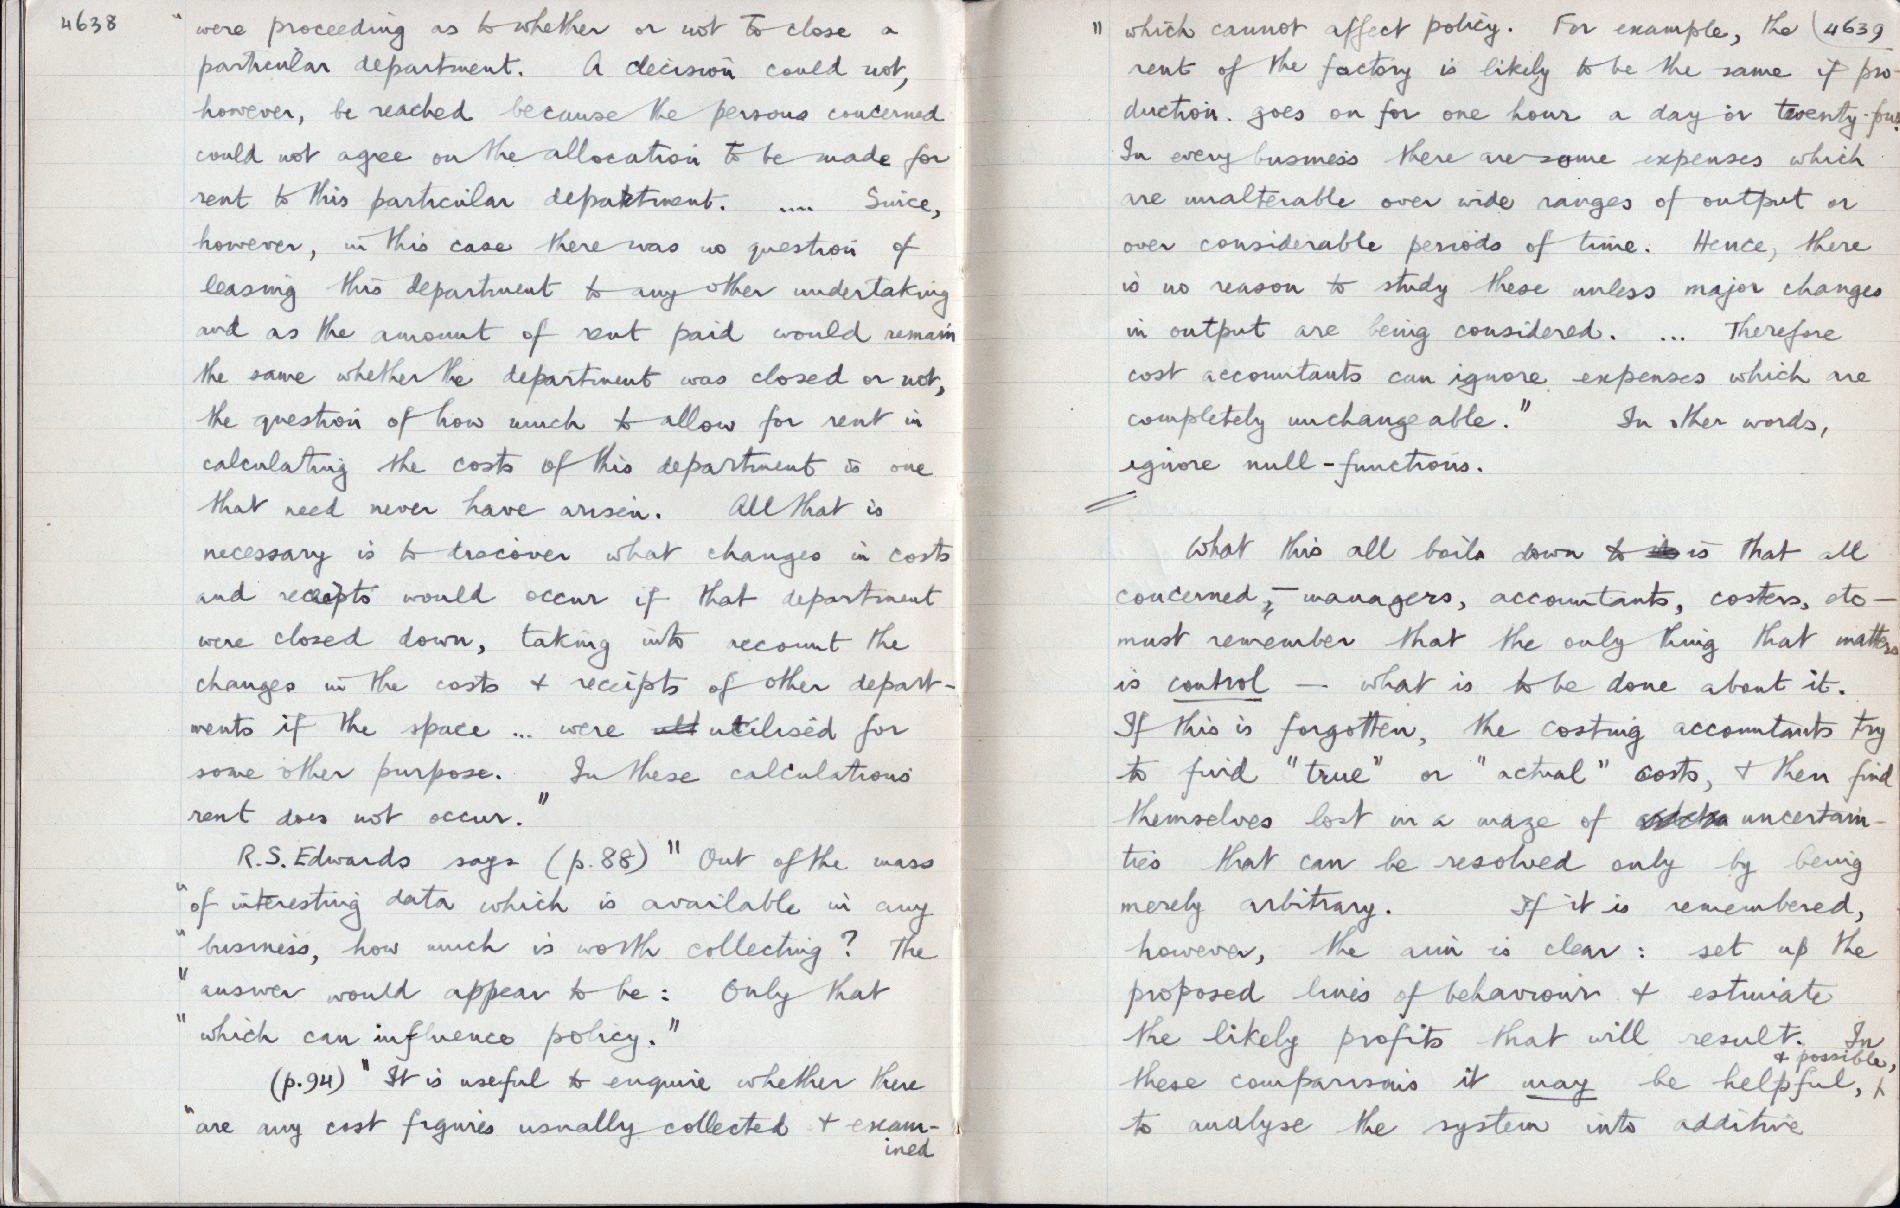 4638
" were proceeding as to whether or not to close a
particular department. A decision could not,
however, be reached because the persons concerned
could not agree on the allocation to be made for
rent to this particular department. .... Since,
however, in this case there was no question of
leasing this department to any other undertaking
and as the amount of rent paid would remain
the same whether the department was closed or not,
the question of how much to allow for rent in
calculating the costs of this department is one
that need never have arisen. All that is
necessary is to discover what changes in costs
and receipts would occur if that department
were closed down, taking into account the
changes in the costs + receipts of other depart-
ments if the space ... were utilised for
some other purpose. In these calculations
rent does not occur."
R.S. Edwards says (p.88) " Out of the mass
" of interesting data which is available in any
" business, how much is worth collecting? The
" answer would appear to be: Only that
" which can influence policy."
(p.94) " It is useful to enquire whether there
" are any cost figures usually collected + exam-
ined
4639
" which cannot affect policy. For example, the
rent of the factory is likely to be the same if pro-
duction goes on for one hour a day or twenty-four.
In every business there are some expenses which
are unalterable over wide ranges of output or
over considerable periods of time. Hence, there
is no reason to study these unless major changes
in output are being considered. ... Therefore
cost accountants can ignore expenses which are
completely unchangeable." In other words,
ignore null-functions.
What this all boils down to is that all
concerned, — managers, accountants, costers, etc —
must remember that the only thing that matters
is control — what is to be done about it.
If this is forgotten, the costing accountants try
to find "true" or "actual" costs, + then find
themselves lost in a maze of uncertain-
ties that can be resolved only by being
merely arbitrary. If it is remembered,
however, the aim is clear: set up the
proposed lines of behaviour + estimate
the likely profits that will result. In
+ possible,
these comparisons it may be helpful,
to analyse the system into additive